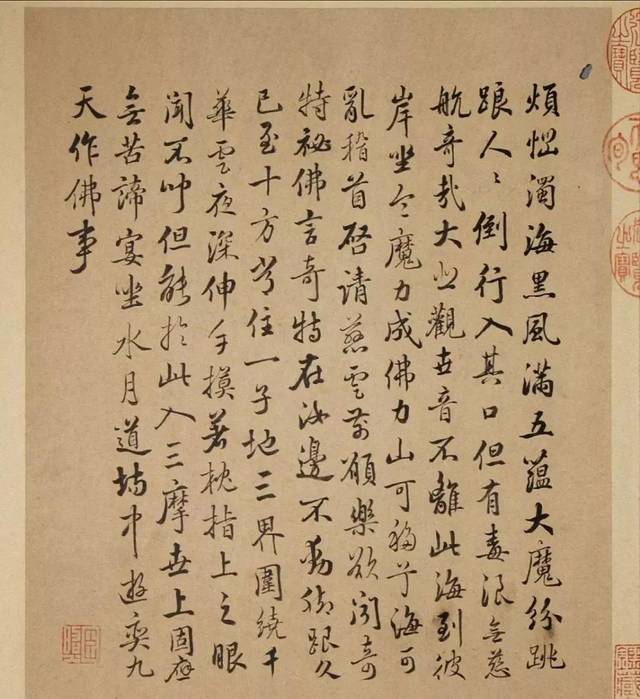 煩惱濁海黑風滿五蘊大魔紛跳
踉人人倒行入其口但有毒浪無慈
航奇哉大悲觀世音不離此海到彼
岸坐令魔力成佛力山可移兮海可
亂稽首啓請慈雲前願樂欲聞奇
特祕佛言奇特在汝邊不動腳跟久
已至十方常住一子地三界圍繞千
華雲夜深伸手摸著枕指上之眼
聞不聞但能於此入三摩世上固應
無苦諦宴坐水月道場中遊奕九
天作佛事